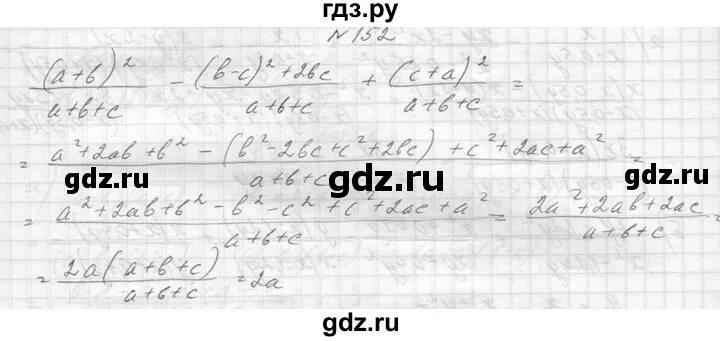 гдз.ру
N 152
(a+b)²/(a+b+c) - ((b-c)²+2bc)/(a+b+c) + (c+a)²/(a+b+c) =
= (a²+2ab+b² - (b²-2bc+c²+2bc) + c²+2ac+a²)/(a+b+c) =
gdz.ru
gdz.ru
= (a²+2ab+b²-b²-c²+c²+2ac+a²)/(a+b+c) = (2a²+2ab+2ac)/(a+b+c) =
= 2a(a+b+c)/(a+b+c) = 2a
gdz.ru
gdz.ru